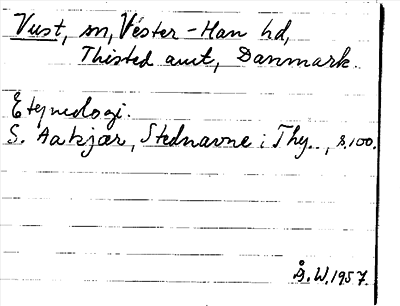 Vust, sn, Vester-Han hd,
Thisted amt, Danmark.
Etymologi.
S. Aakjær, Stednavne i Thy.., s. 100.
Å. W. 1957.